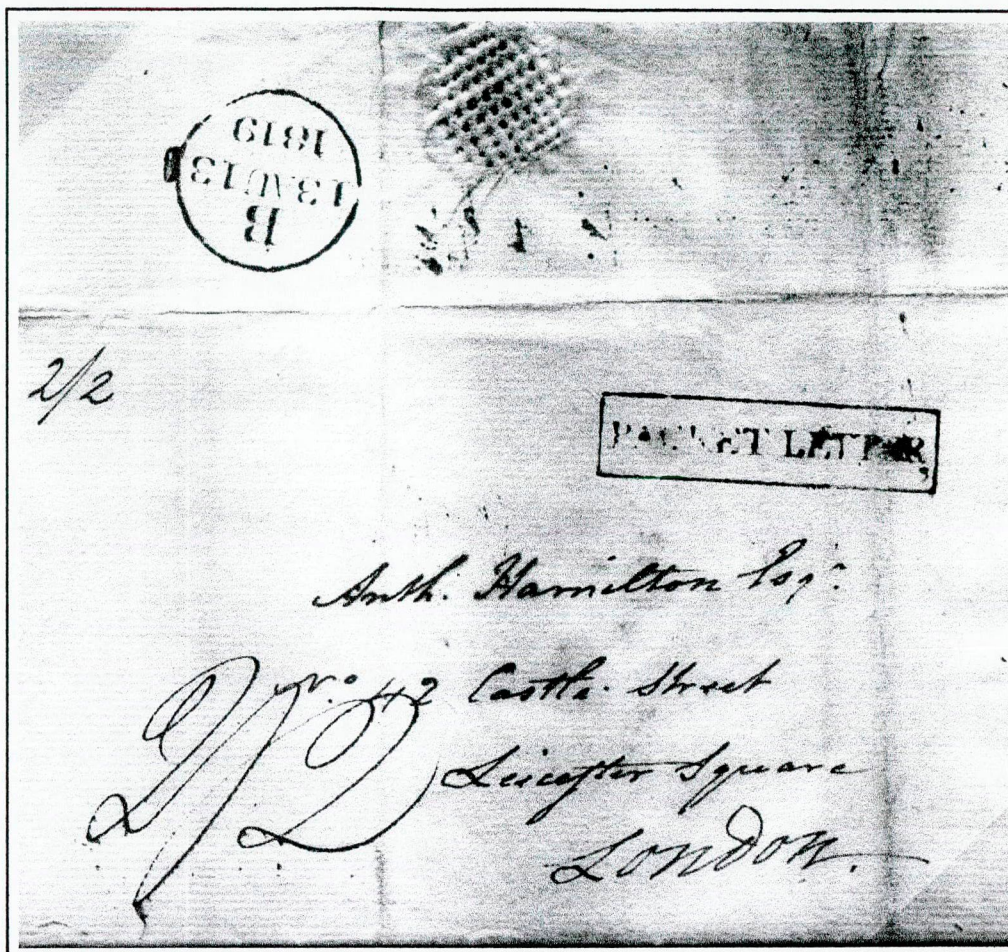 B
13AU13
1819
2/2
PACKET LETTER
Anth. Hamilton Esqr.
No. 42 Castle Street
Leicester Square
London.
2/2